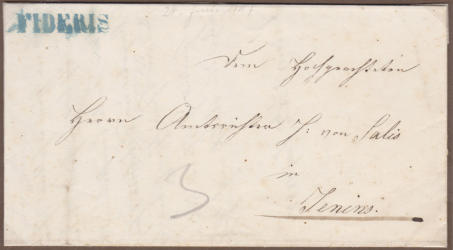 FIDERIS
Dem Hochgeachteten
Herrn Amtsrichter J: von Salis
in
Jenins.
3